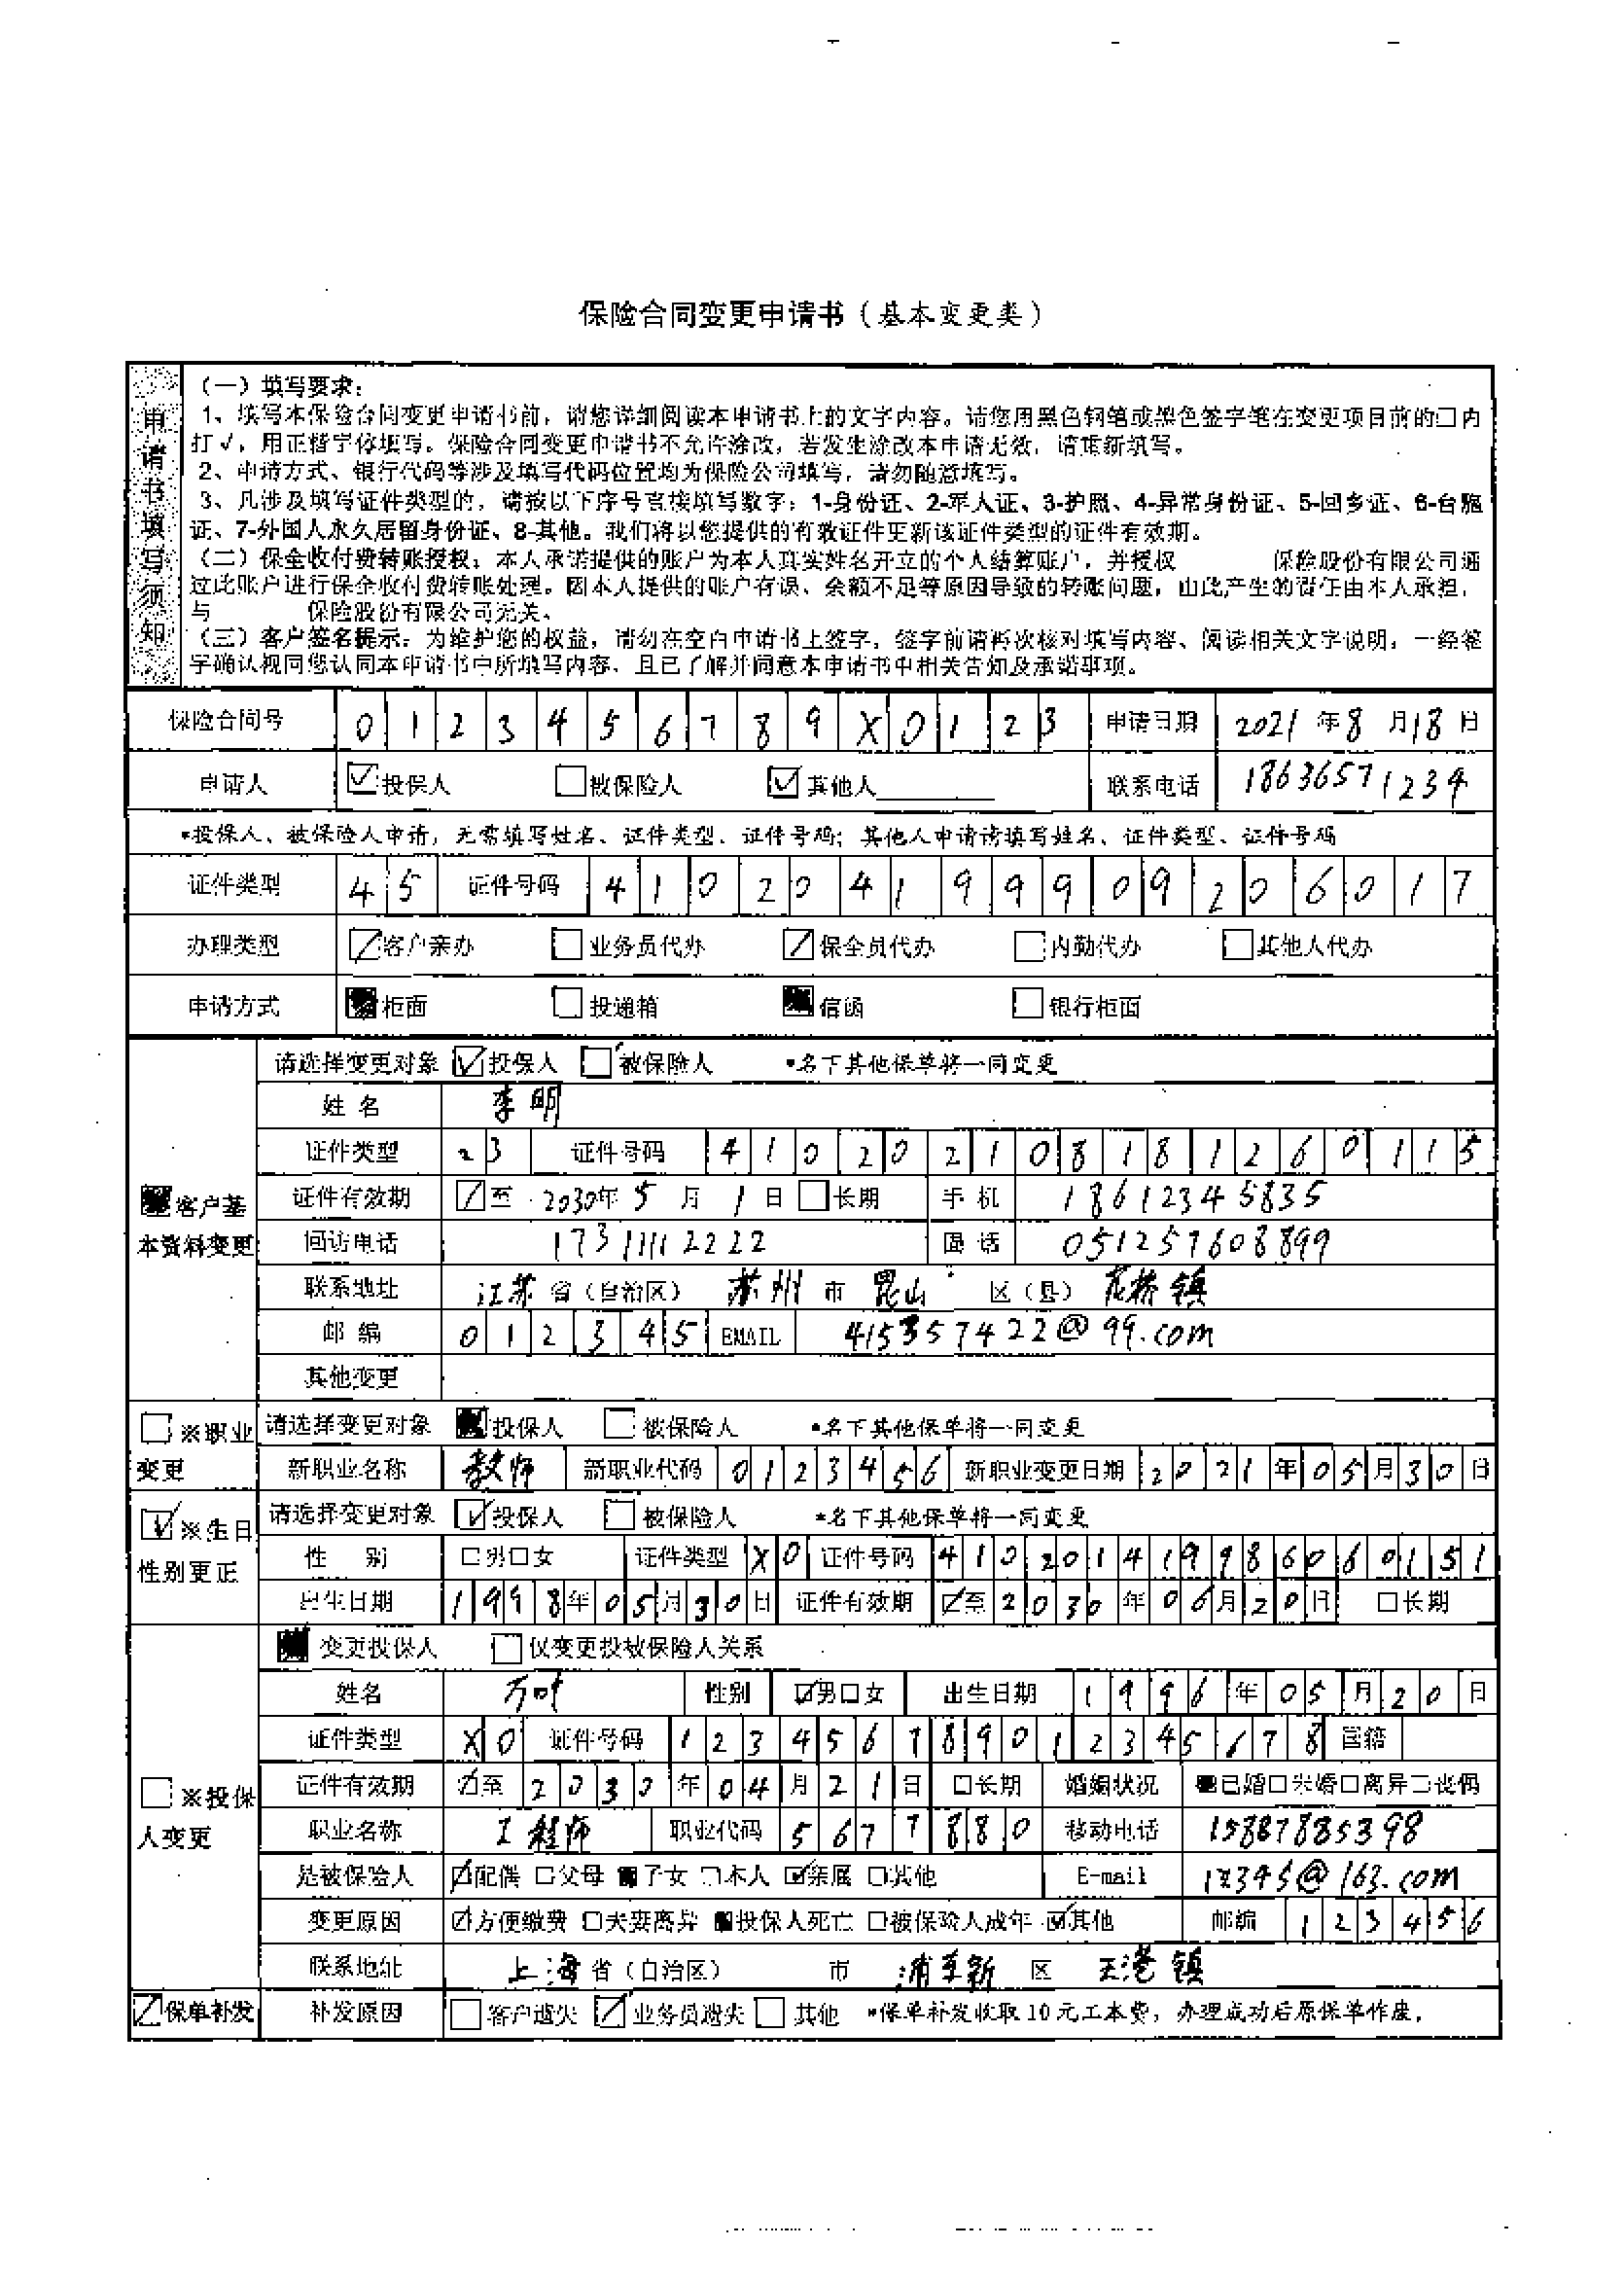 保险合同变更申请书（基本变更类）
申请书填写须知
（一）填写要求：
1、填写本保险合同变更申请书前，请您详细阅读本申请书上的文字内容。请您用黑色钢笔或黑色签字笔在变更项目前的□内
打√，用正楷字体填写。保险合同变更申请书不允许涂改，若发生涂改本申请无效，请重新填写。
2、申请方式、银行代码等涉及填写代码位置均为保险公司填写，请勿随意填写。
3、凡涉及填写证件类型的，请按以下序号直接填写数字：1-身份证、2-军人证、3-护照、4-异常身份证、5-回乡证、6-台胞
证、7-外国人永久居留身份证、8-其他。我们将以您提供的有效证件更新该证件类型的证件有效期。
（二）保全收付费转账授权：本人承诺提供的账户为本人真实姓名开立的个人结算账户，并授权 保险股份有限公司通
过此账户进行保全收付费转账处理。因本人提供的账户有误、余额不足等原因导致的转账问题，由此产生的责任由本人承担，
与 保险股份有限公司无关。
（三）客户签名提示：为维护您的权益，请勿在空白申请书上签字。签字前请再次核对填写内容、阅读相关文字说明，一经签
字确认视同您认同本申请书中所填写内容、且已了解并同意本申请书中相关告知及承诺事项。
保险合同号 0123456789X0123 申请日期 2021年8月18日
申请人 ☑投保人 □被保险人 ☑其他人 联系电话 18636571234
*投保人、被保险人申请，无需填写姓名、证件类型、证件号码；其他人申请请填写姓名、证件类型、证件号码
证件类型 45 证件号码 410204199909206017
办理类型 ☑客户亲办 □业务员代办 ☑保全员代办 □内勤代办 □其他人代办
申请方式 ■柜面 □投递箱 ■信函 □银行柜面
■客户基本资料变更
请选择变更对象 ☑投保人 □被保险人 *名下其他保单将一同变更
姓名 李明
证件类型 23 证件号码 410202108181260115
证件有效期 ☑至 2030年5月1日 □长期 手机 18612345835
回访电话 17311112222 固话 051257608899
联系地址 江苏省（自治区） 苏州市 昆山区（县） 花桥镇
邮编 012345 EMAIL 415357422@qq.com
其他变更
□※职业变更
请选择变更对象 ■投保人 □被保险人 *名下其他保单将一同变更
新职业名称 教师 新职业代码 0123456 新职业变更日期 2021年05月30日
☑※生日性别更正
请选择变更对象 ☑投保人 □被保险人 *名下其他保单将一同变更
性别 □男□女 证件类型 X0 证件号码 410201419986060151
出生日期 1998年05月30日 证件有效期 ☑至2030年06月20日 □长期
□※投保人变更
■变更投保人 □仅变更投被保险人关系
姓名 性别 ☑男□女 出生日期 1996年05月20日
证件类型 X0 证件号码 123456789012345678 国籍
证件有效期 ☑至2030年04月21日 □长期 婚姻状况 ■已婚□未婚□离异□丧偶
职业名称 工程师 职业代码 5677880 移动电话 15887885398
是被保险人 ☑配偶 □父母 ■子女 □本人 ☑亲属 □其他 E-mail 12345@163.com
变更原因 ☑方便缴费 □夫妻离异 ■投保人死亡 □被保险人成年 ☑其他 邮编 123456
联系地址 上海省（自治区） 市 浦东新区 王港镇
☑保单补发 补发原因 □客户遗失 ☑业务员遗失 □其他 *保单补发收取10元工本费，办理成功后原保单作废。